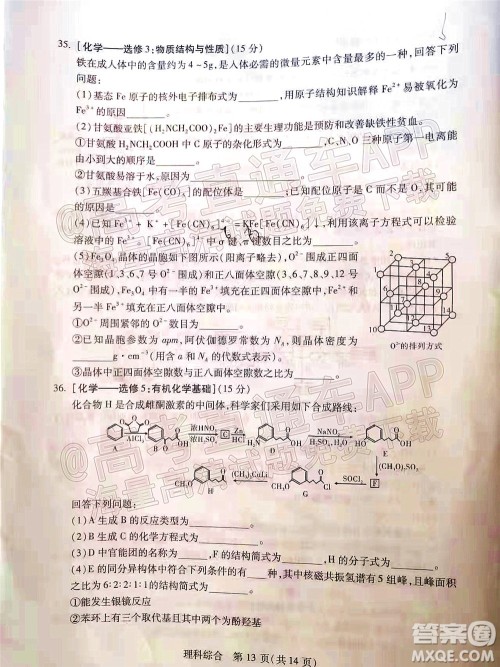 35. [化学——选修3:物质结构与性质](15分)
铁在成人体中的含量约为4~5g,是人体必需的微量元素中含量最多的一种,回答下列
问题:
(1)基态Fe原子的核外电子排布式为______,用原子结构知识解释Fe²⁺易被氧化为
Fe³⁺的原因______。
(2)甘氨酸亚铁[(H₂NCH₂COO)₂Fe]的主要生理功能是预防和改善缺铁性贫血。
①甘氨酸H₂NCH₂COOH中C原子的杂化形式为______,甘氨酸中所含元素第一电离能
由小到大的顺序是______。
②甘氨酸易溶于水,原因为______。
(3)五羰基合铁[Fe(CO)₅]的配体为______,已知配位原子是C而不是O,其原因
是______。
(4)已知Fe³⁺+K⁺+[Fe(CN)₆]⁴⁻=KFe[Fe(CN)₆]↓,利用该离子方程式可以检验
溶液中的Fe³⁺,[Fe(CN)₆]⁴⁻中σ键、π键数目之比为______。
(5)Fe₃O₄晶体的晶胞示意图如图所示(阳离子略去),O²⁻围成正四面
体空隙(1,3,6,7号O²⁻围成)和正八面体空隙(3,6,7,8,9,12
号O²⁻围成),Fe₃O₄中有一半Fe³⁺填充在正四面体空隙中,Fe²⁺和
另一半Fe³⁺填充在正八面体空隙中。
①O²⁻周围紧邻的O²⁻数目为______。
②已知晶胞参数为apm,阿伏伽德罗常数为Nₐ,该晶体的密度为
______g·cm⁻³(用含a和Nₐ的代数式表示)。
③晶体中正四面体空隙数与正八面体空隙数之比为______。
O²⁻的排列方式
36. [化学——选修5:有机化学基础](15分)
化合物H是合成雌酮激素的中间体,科学家采用如下合成路线:
回答下列问题:
(1)A生成B的反应类型为______。
(2)B生成C的化学方程式为______。
(3)D中官能团的名称为______,F的结构简式为______,H的分子式为______。
(4)E的同分异构体中符合下列条件的有______种,其中核磁共振氢谱有5组峰,且峰面积
之比为6:2:2:1:1的结构简式为______。
①能发生银镜反应
②苯环上有三个取代基且其中两个为酚羟基
理科综合 第13页(共14页)